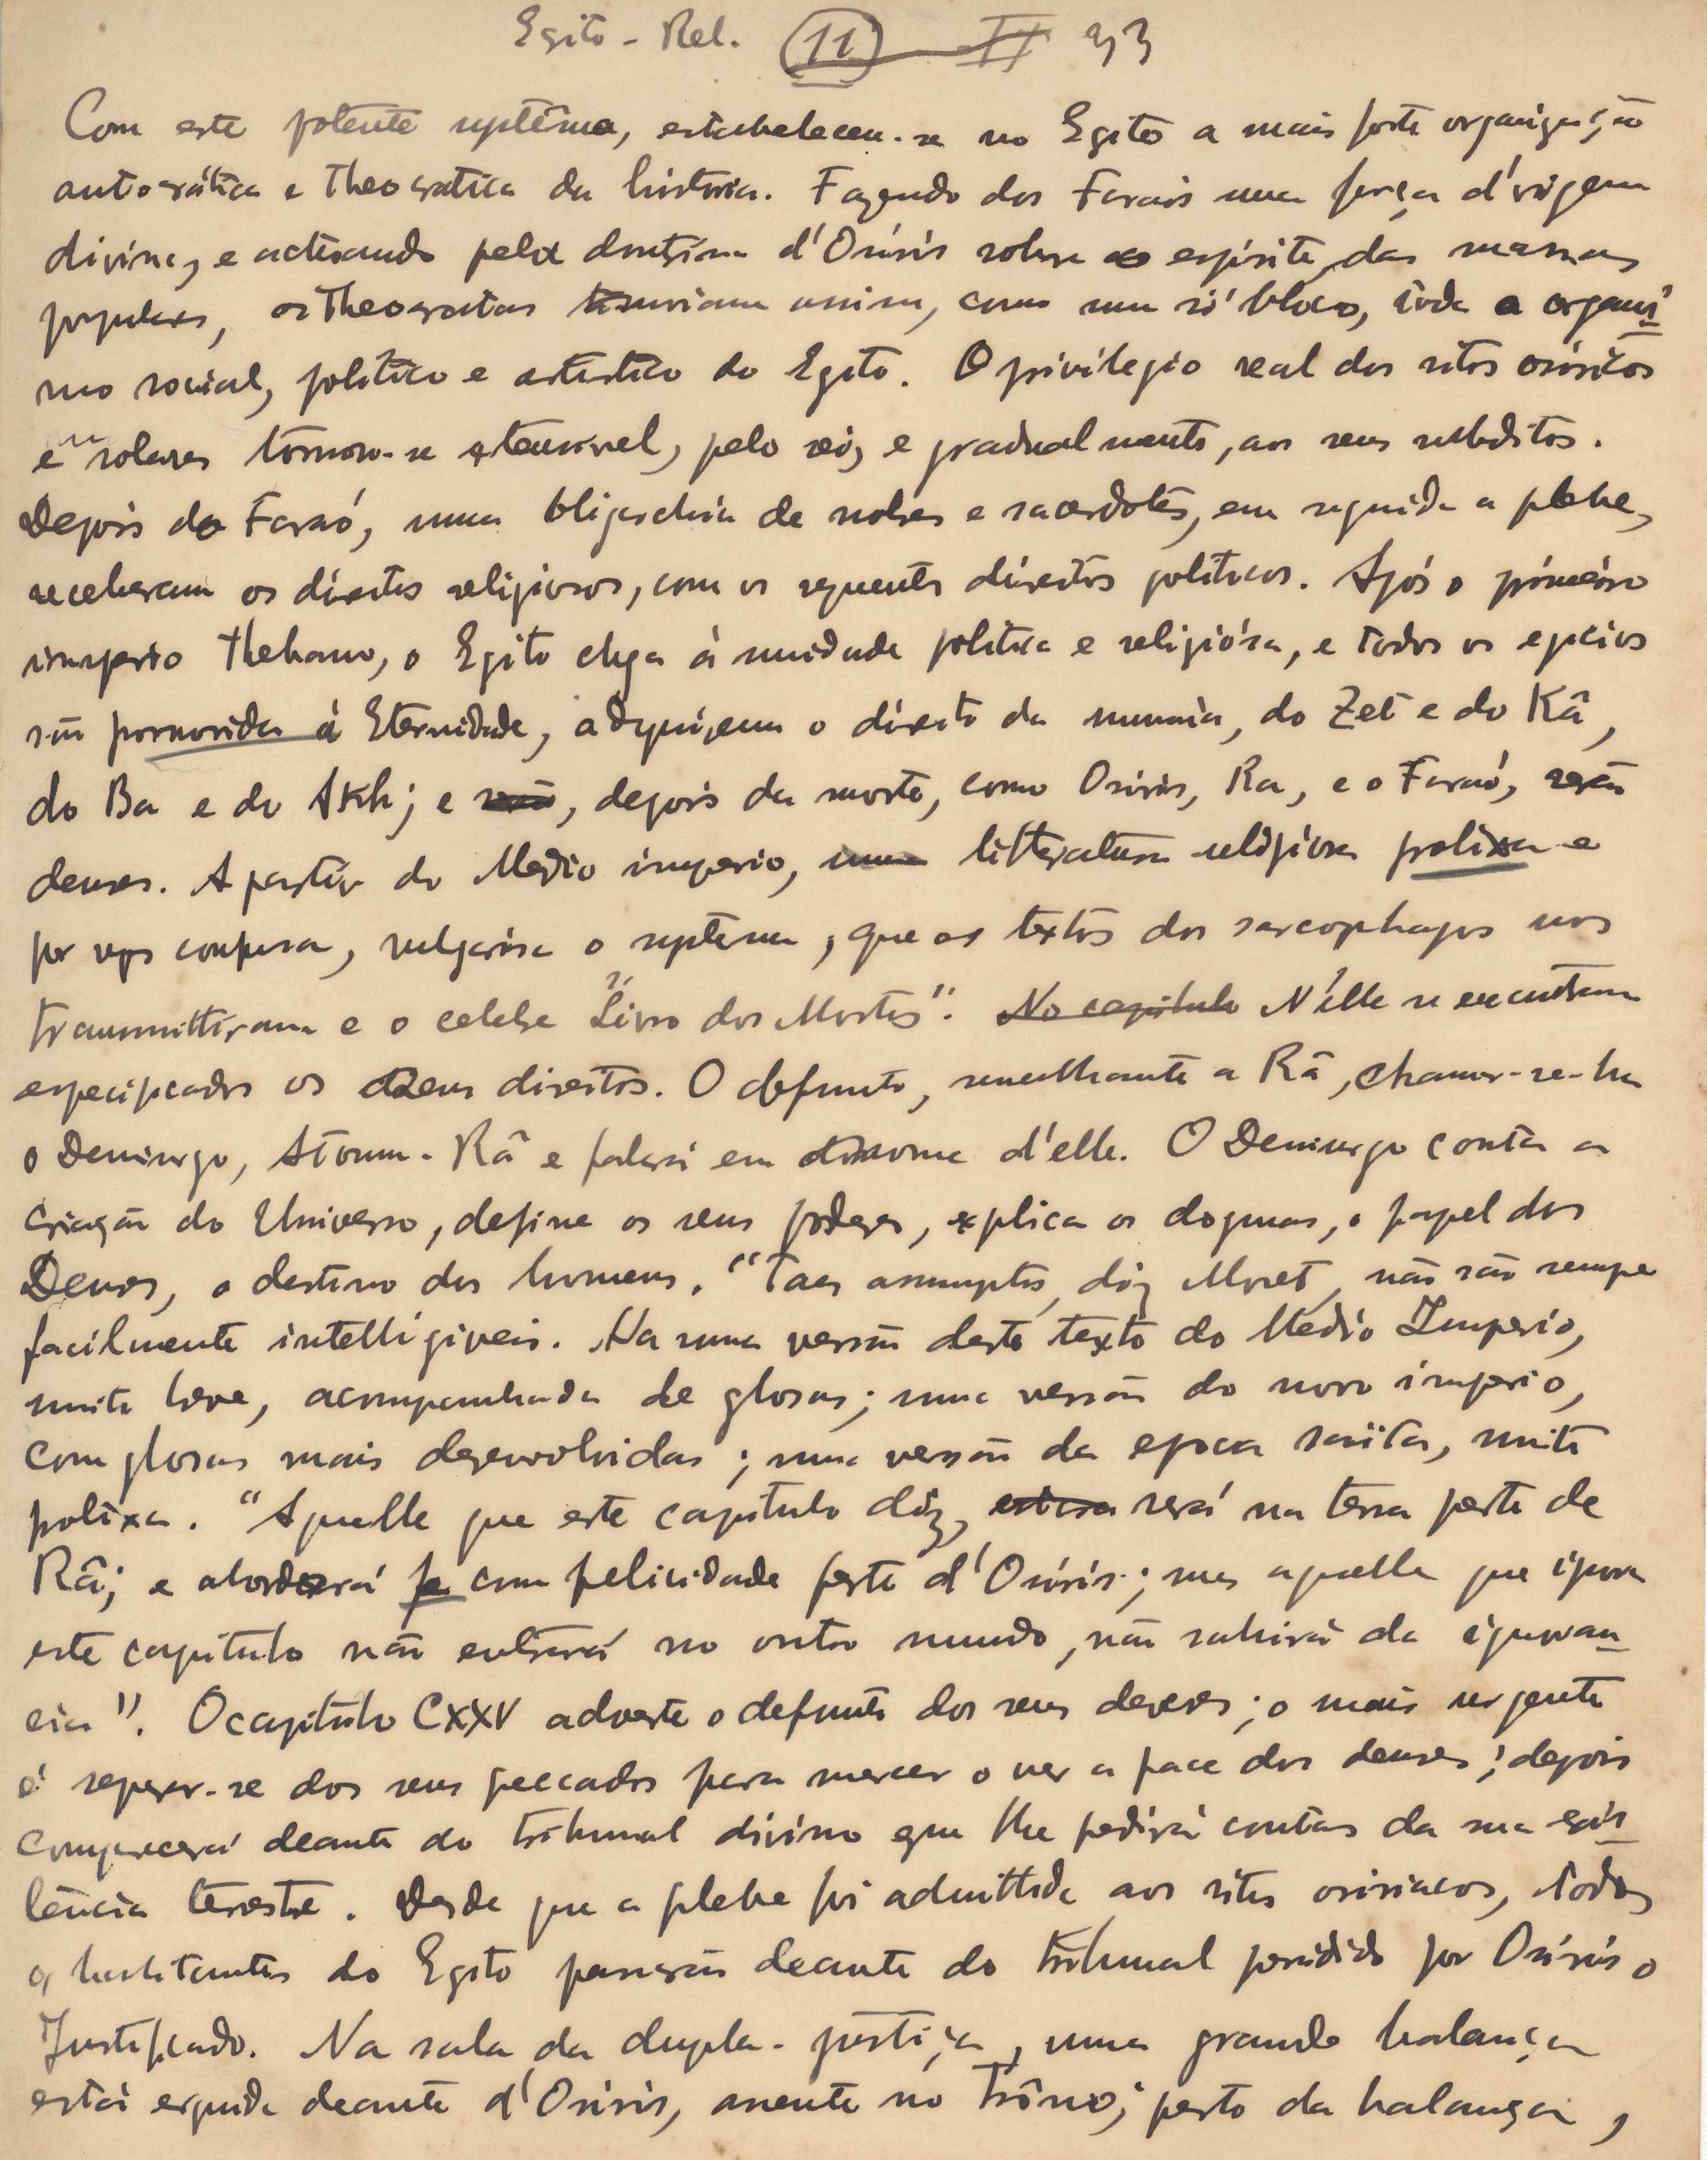 Egito - Rel. (11) II 33
Com este potente systêma, estabeleceu-se no Egito a mais forte organização
autocrática e theocratica da história. Fazendo dos Faraós uma força d'origem
divina, e actuando pela doutrina d'Osiris sobre o espirito das massas
populares, os theocratas uniam assim, como um só bloco, todo o organi
mo social, politico e artistico do Egito. O privilegio real dos ritos osiricos
e solares tornou-se extensivel, pelo rei, e gradualmente, aos seus subditos.
Depois do Faraó, uma oligarchia de nobres e sacerdotes, em seguida a plebe,
receberam os direitos religiosos, com os sequentes direitos politicos. Após o primeiro
imperio thebano, o Egito chega á unidade politica e religiósa, e todos os epcios
são á Eternidade, adquirem o direito da mumia, do Zet e do Kâ,
do Ba e do Akh; e serão, depois da morte, como Osiris, Ra, e o Faraó, serão
deuses. A partir do Medio imperio, uma litteratura religiosa prolixa e
por vezes confusa, vulgarisa o systema, que os textos dos sarcophagos nos
transmittiram e o celebre "Livro dos Mortos". No capitulo N'elle se encontram
especificados os seus direitos. O defunto, semelhante a Râ, chamar-se-ha
o Demiurgo, Atoum-Râ e falará em nome d'elle. O Demiurgo conta a
criação do Universo, define os seus poderes, explica os dogmas, o papel dos
Deuses, o destino dos homens. "Taes assumptos, diz Moret, não são sempre
facilmente intelligiveis. Ha uma versão deste texto do Médio Imperio,
muito breve, acompanhada de glosas; uma versão do novo imperio,
com glosas mais desenvolvidas; uma versão da epoca saïta, muito
prolixa. "Aquelle que este capitulo diz, será na terra perto de
Râ; e abordará com felicidade perto d'Osiris; mas aquelle que ignora
este capitulo não entrará no outro mundo, não sahirá da ignoran
cia". O capitulo CXXV adverte o defunto dos seus deveres; o mais urgente
é separar-se dos seus peccados para merecer o ver a face dos deuses; depois
comparecerá deante do tribunal divino que lhe pedirá contas da sua exis
tência terrestre. Desde que a plebe foi admittida aos ritos osiriacos, todos
os habitantes do Egito passarão deante do tribunal presidido por Osiris o
Justificado. Na sala da dupla-justiça, uma grande balança
está erguida deante d'Osiris, assente no trôno; perto da balança,